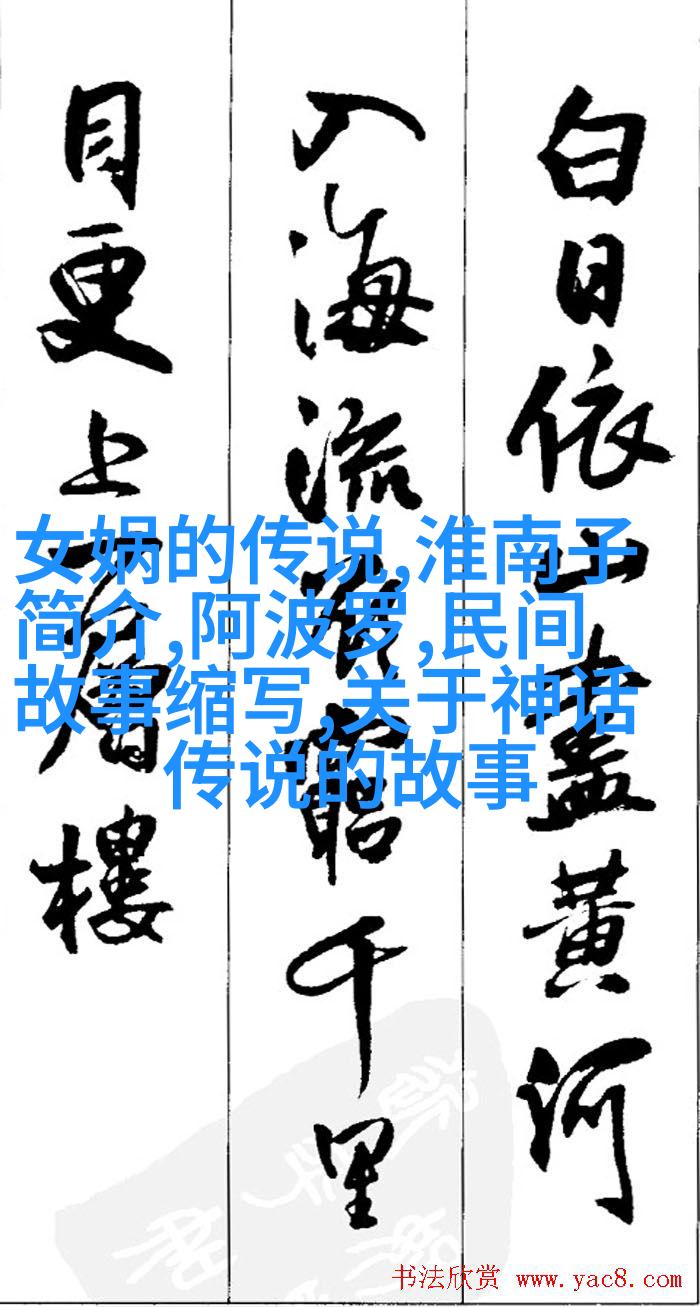 白日依山盡黄河
入海流欲窮千里
目更上一層樓
女娲的传说,淮南子
简介,阿波罗,民间
故事缩写,关于神话
传说的故事
书法欣赏 www.yac8.com